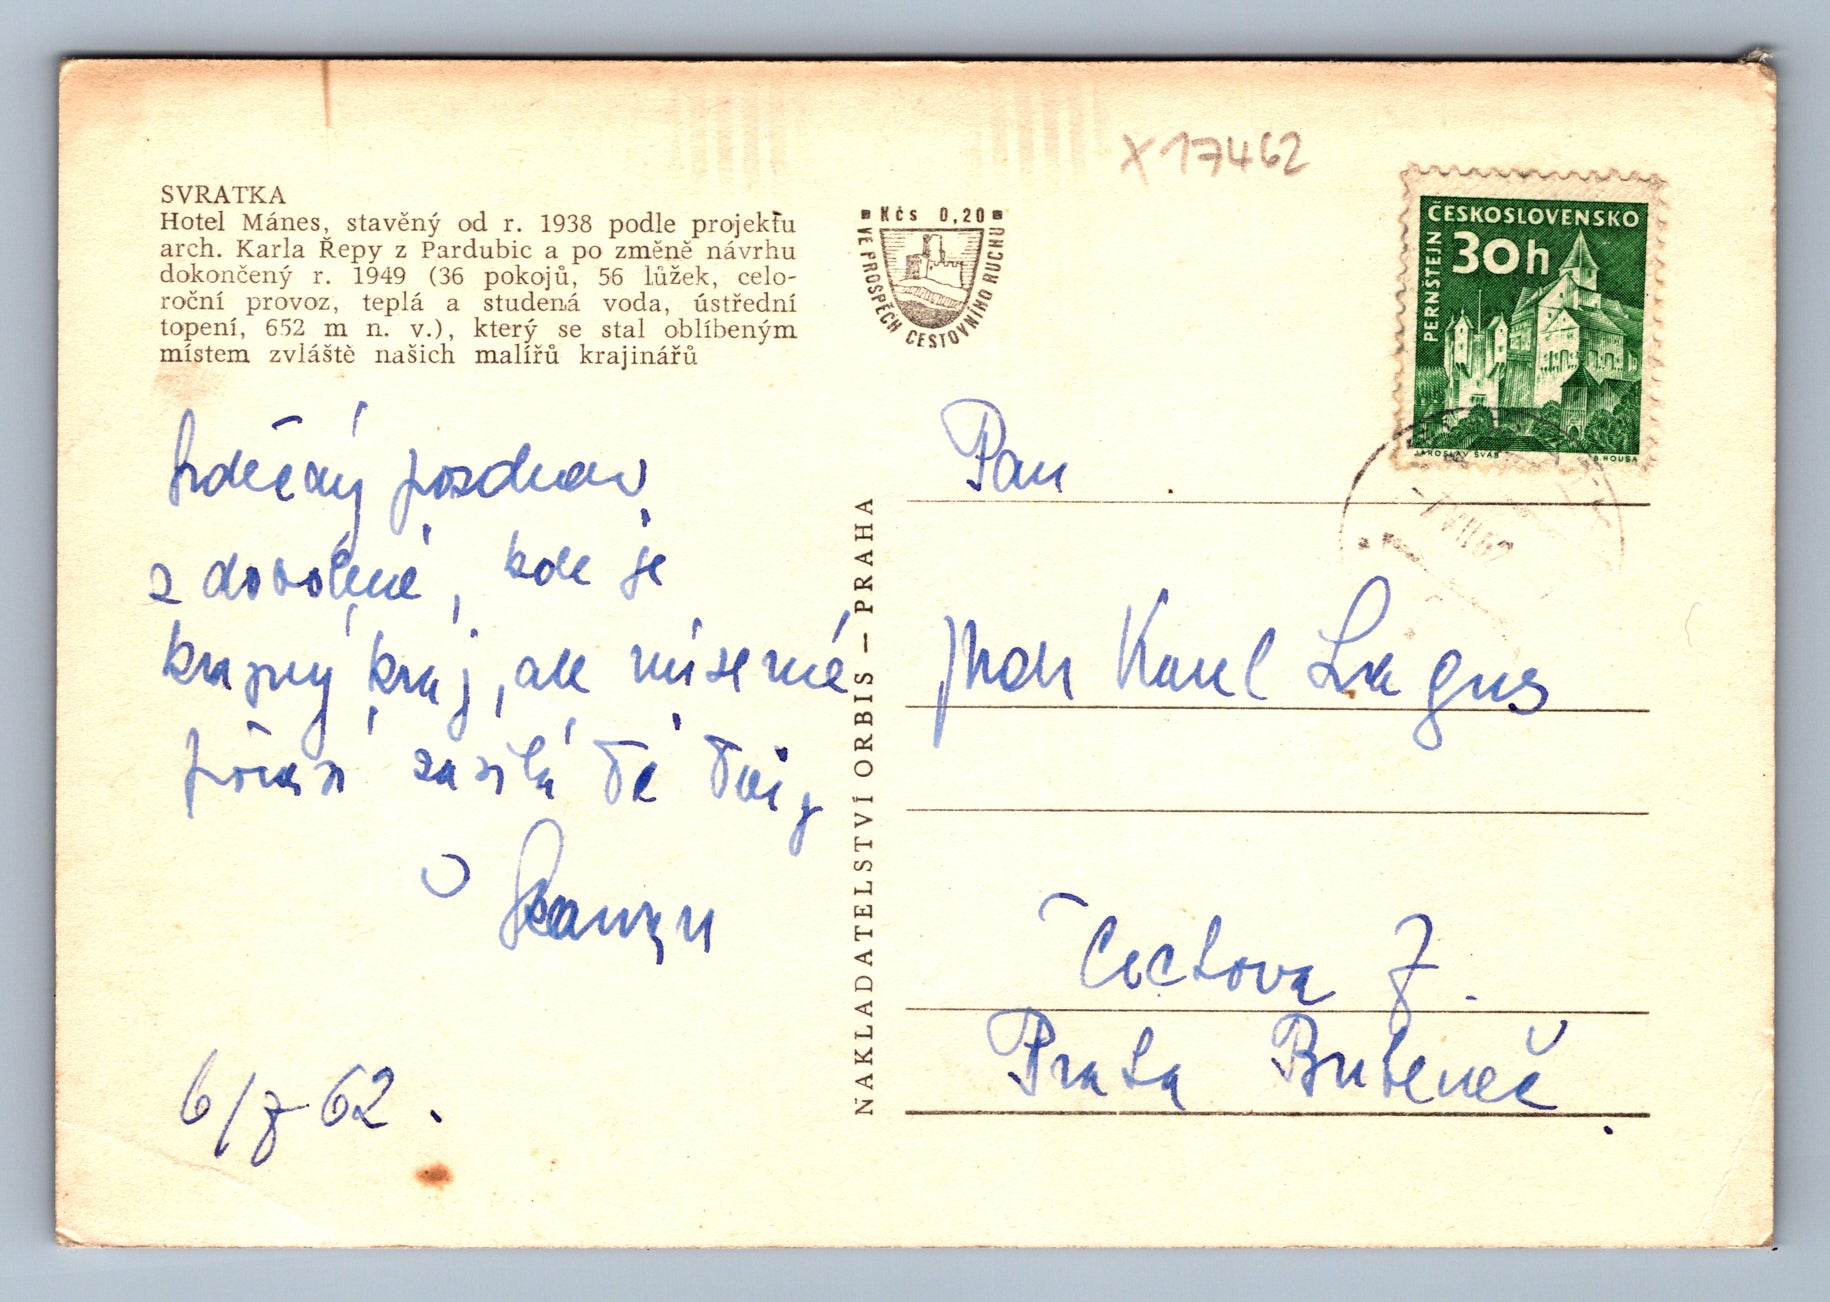 SVRATKA
Hotel Mánes, stavěný od r. 1938 podle projektu
arch. Karla Řepy z Pardubic a po změně návrhu
dokončený r. 1949 (36 pokojů, 56 lůžek, celo-
roční provoz, teplá a studená voda, ústřední
topení, 652 m n. v.), který se stal oblíbeným
místem zvláště našich malířů krajinářů
Srdečný pozdrav
z dovolené, kde je
krásný kraj, ale mizerné
počasí zasílá Ti Tvůj
6/7 62.
NAKLADATELSTVÍ ORBIS — PRAHA
Kčs 0,20
VE PROSPĚCH CESTOVNÍHO RUCHU
X 17462
ČESKOSLOVENSKO
30h
PERNŠTEJN
JAROSLAV ŠVÁB
B. HOUSA
-7.VII.62
Pan
Karel Lagus
Čechova 7.
Praha Bubeneč